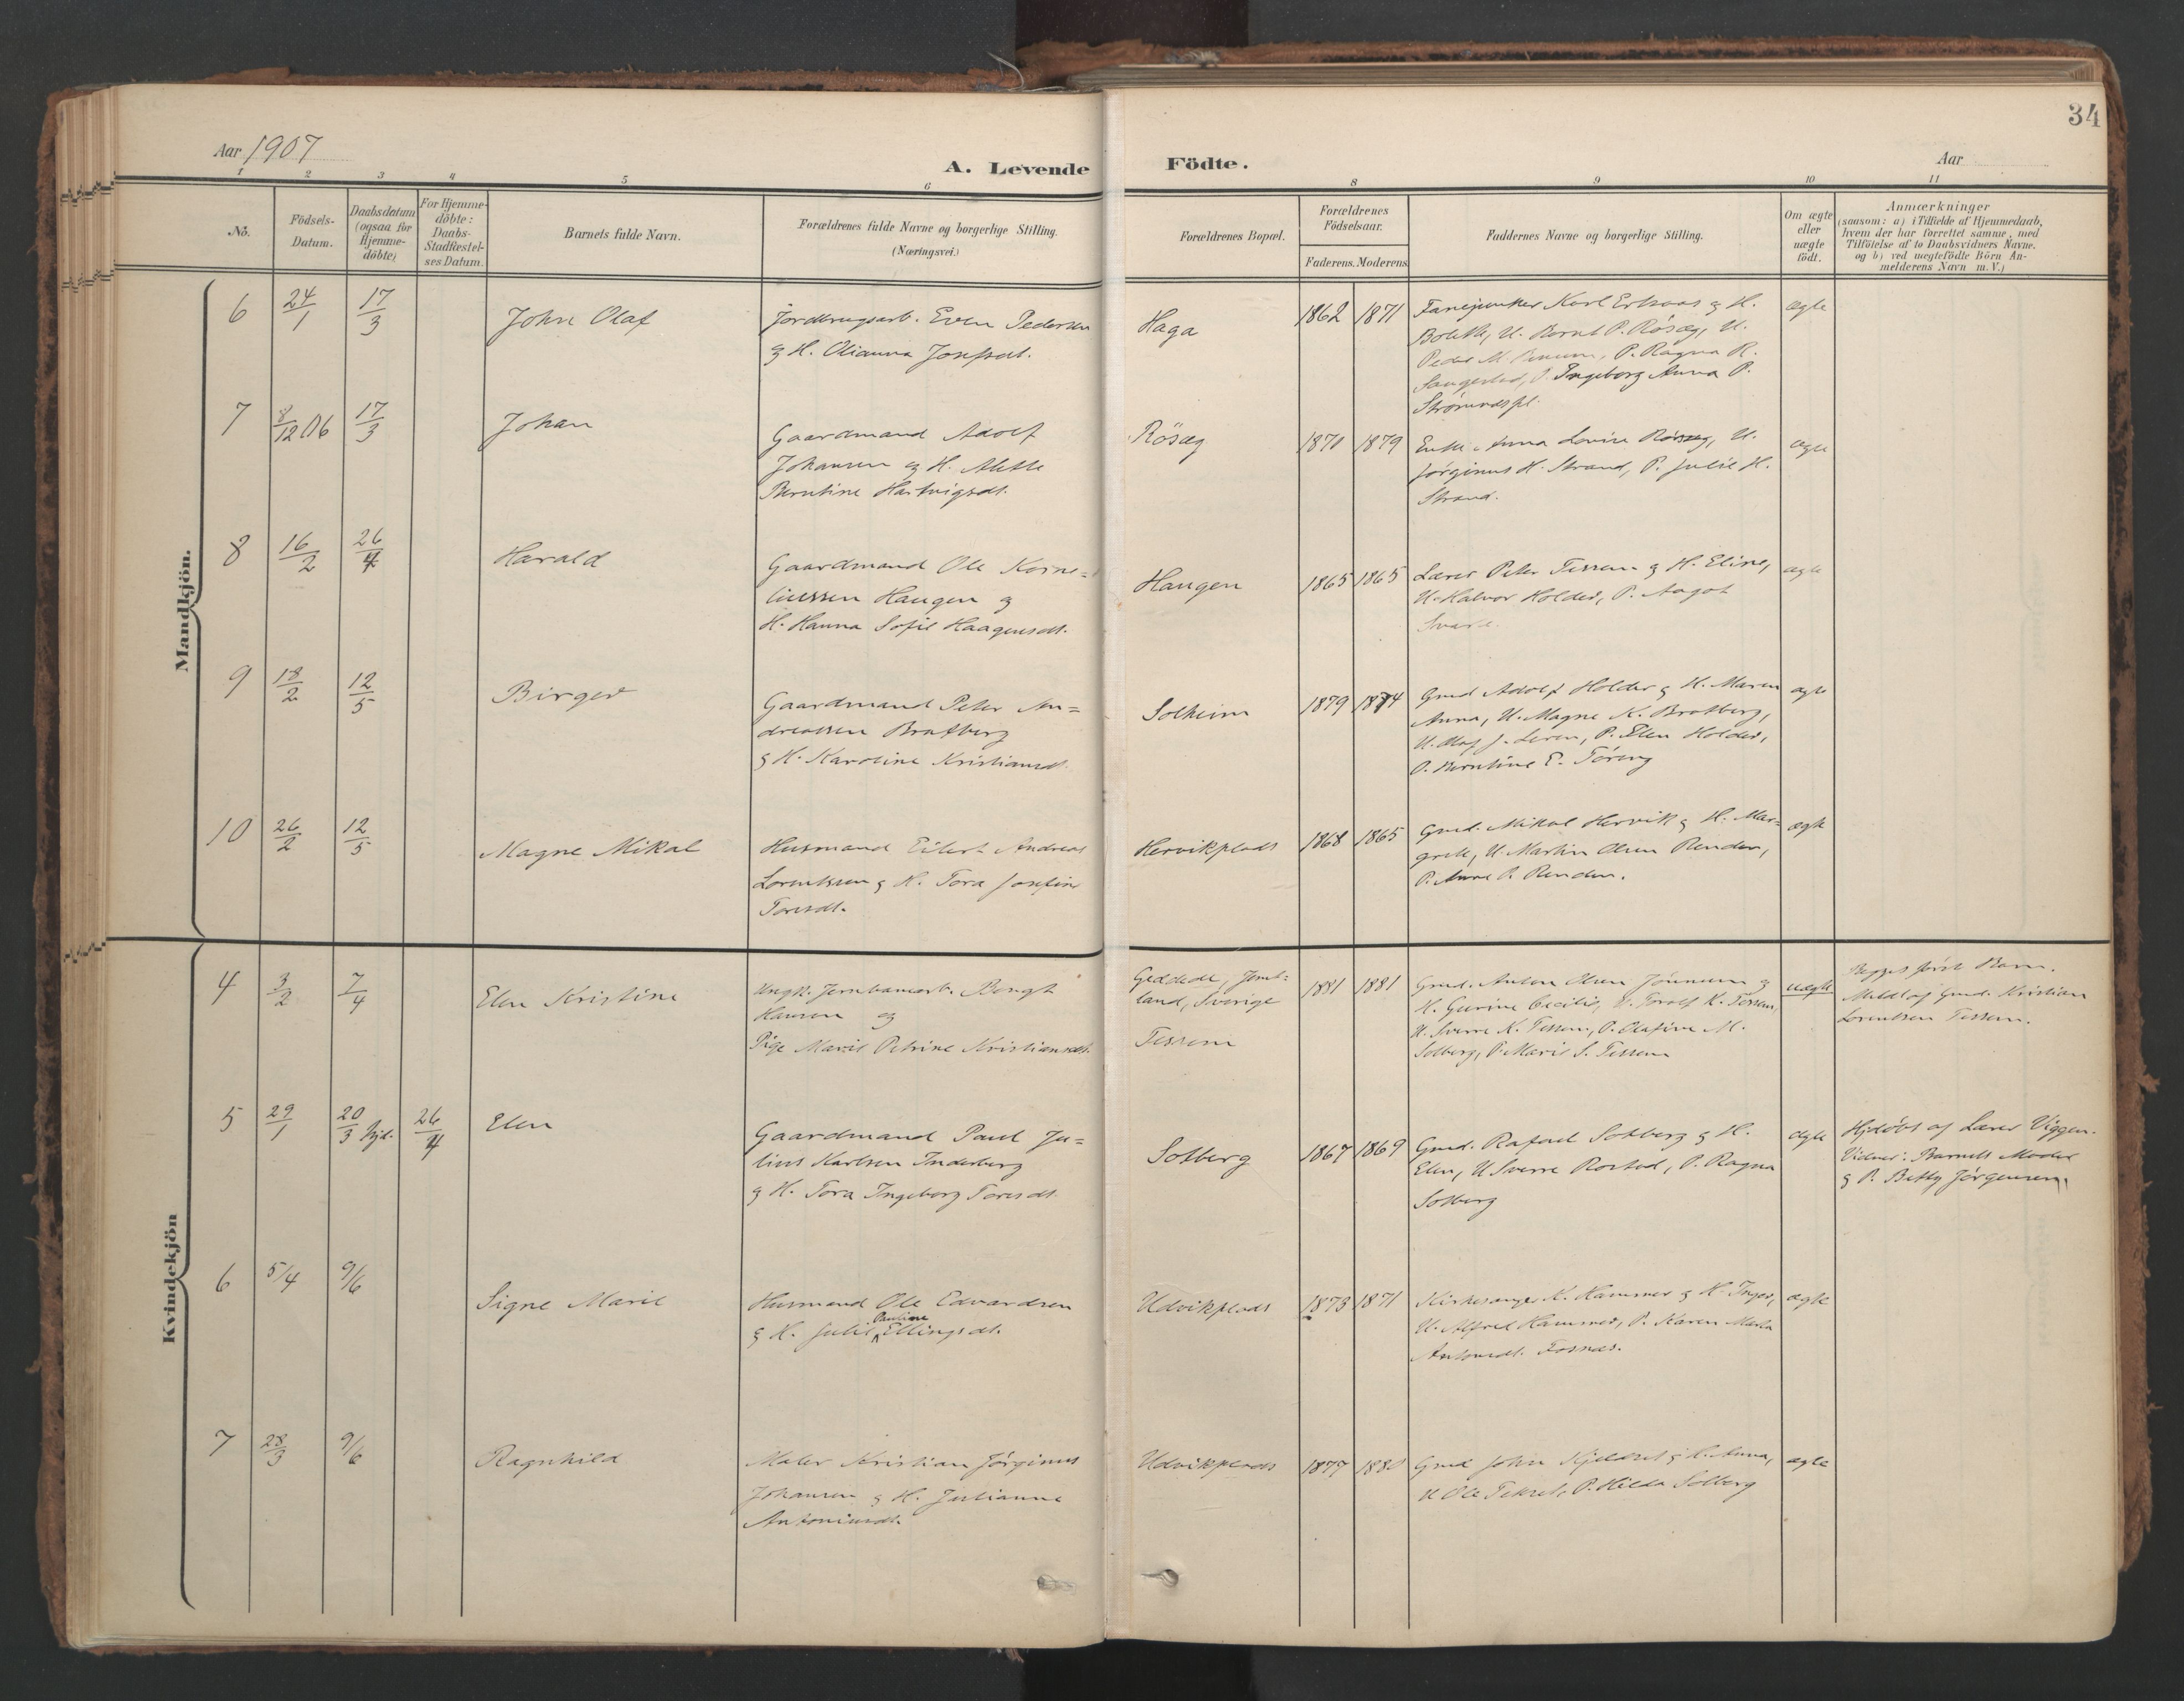 34
Aar 1907
A. Levende Födte.
Aar
1 2 3 4 5 6 8 9 10 11
No.
Födsels-
Datum.
Daabsdatum
(ogsaa for
Hjemme-
döbte)
For Hjemme-
döbte:
Daabs-
Stadfestel-
ses Datum.
Barnets fulde Navn.
Forældrenes fulde Navne og borgerlige Stilling.
(Næringsvei.)
Forældrenes Bopæl.
Forældrenes
Födselsaar.
Faderens. Moderens.
Faddernes Navne og borgerlige Stilling.
Om ægte
eller
uægte
födt.
Anmærkninger
(saasom: a) i Tilfælde af Hjemmedaab,
hvem der har forrettet samme, med
Tilföielse af to Daabsvidners Navne.
og b) ved uægtefödte Börn An-
melderens Navn m. V.)
Mandkjön.
6 24/1 17/3 John Olaf
Jordbrugsarb. Even Pedersen
& H. Olianna Josefsdt.
Haga 1862 1871
Fanejunker Karl Erksaas & H.
Bolette, U. Bernt P. Rösæg, U.
Peder M., P. Ragna R.
P. Ingeborg Anna P.
Strømnespl.
ægte
7 8/12 06 17/3 Johan
Gaardmand Adolf
Johansen og H. Alette
Berntine Hartvigsdt.
Rösæg 1870 1879
Enke Anna Lovise Rösæg, U.
Jørginus H. Strand, P. Julie H.
Strand.
ægte
8 16/2 26/4 Harald
Gaardmand Ole Korne=
liussen Haugen og
H. Hanna Sofie Haagensdt.
Haugen 1865 1865
Lærer Peter Tessem & H. Eline,
U. Halvor Holder, P. Aagot
Svard.
ægte
9 18/2 12/5 Birger
Gaardmand Peter An=
dreassen Bratberg
& H. Karoline Kristiansdt.
Solheim 1879 1874
Gmd Adolf Holder & H. Maren
Anna, U. Magne K. Bratberg,
U. Olaf J. Leren, P. Elen Holder,
P. Berntine E. Töring
ægte
10 26/2 12/5 Magne Mikal
Husmand Eilert Andreas
Lorentsen & H. Tora Josefine
Toresdt.
Hervikplads 1868 1865
Gmd. Mikal Hervik & H. Mar=
grete, U. Martin Olsen Renden,
P. Anne P. Renden.
ægte
Kvindekjön
4 3/2 7/4 Elen Kristine
Ungk. Jernbanearb. Bengt
Hansen og
Pige Marie Petrine Kristiansdt.
Geddede, Jemt=
land, Sverige
Tessem
1881 1881
Gmd. Anton Olsen Jönnum &
H. Gurine Cecilie, U. Torolf K. Tessem,
U. Sverre K. Tessem, P. Olafine M.
Solberg, P. Marie S. Tessem
uægte
Begges först Barn.
Meldt af Gmd. Kristian
Lorentsen Tessem.
5 29/1 20/3 hjd. 26/4 Elen
Gaardmand Paul Ju=
lius Karlsen Inderberg
& H. Tora Ingeborg Toresdt.
Solberg 1867 1869
Gmd. Rafael Solberg & H.
Elen, U. Sverre Rostad, P. Ragna
Solberg
ægte
Hjdöbt af Lærer Viggen.
Vidner: Barnets Moder
& P. Betty Jørgensen.
6 5/4 9/6 Signe Marie
Husmand Ole Edvardsen
Pauline
& H. Julie Ellingsdt.
Udvikplads 1873 1871
Kirkesanger K. Hammer & H. Inger,
U. Alfred Hammer, P. Karen Marta
Antonsdt. Fosnæs.
ægte
7 28/3 9/6 Ragnhild
Maler Kristian Jörginus
Johansen & H. Julianne
Antoniusdt.
Udvikplads 1877 1880
Gmd John Kjeldset & H. Anna,
U Ole Tekset, P. Hilda Solberg
ægte